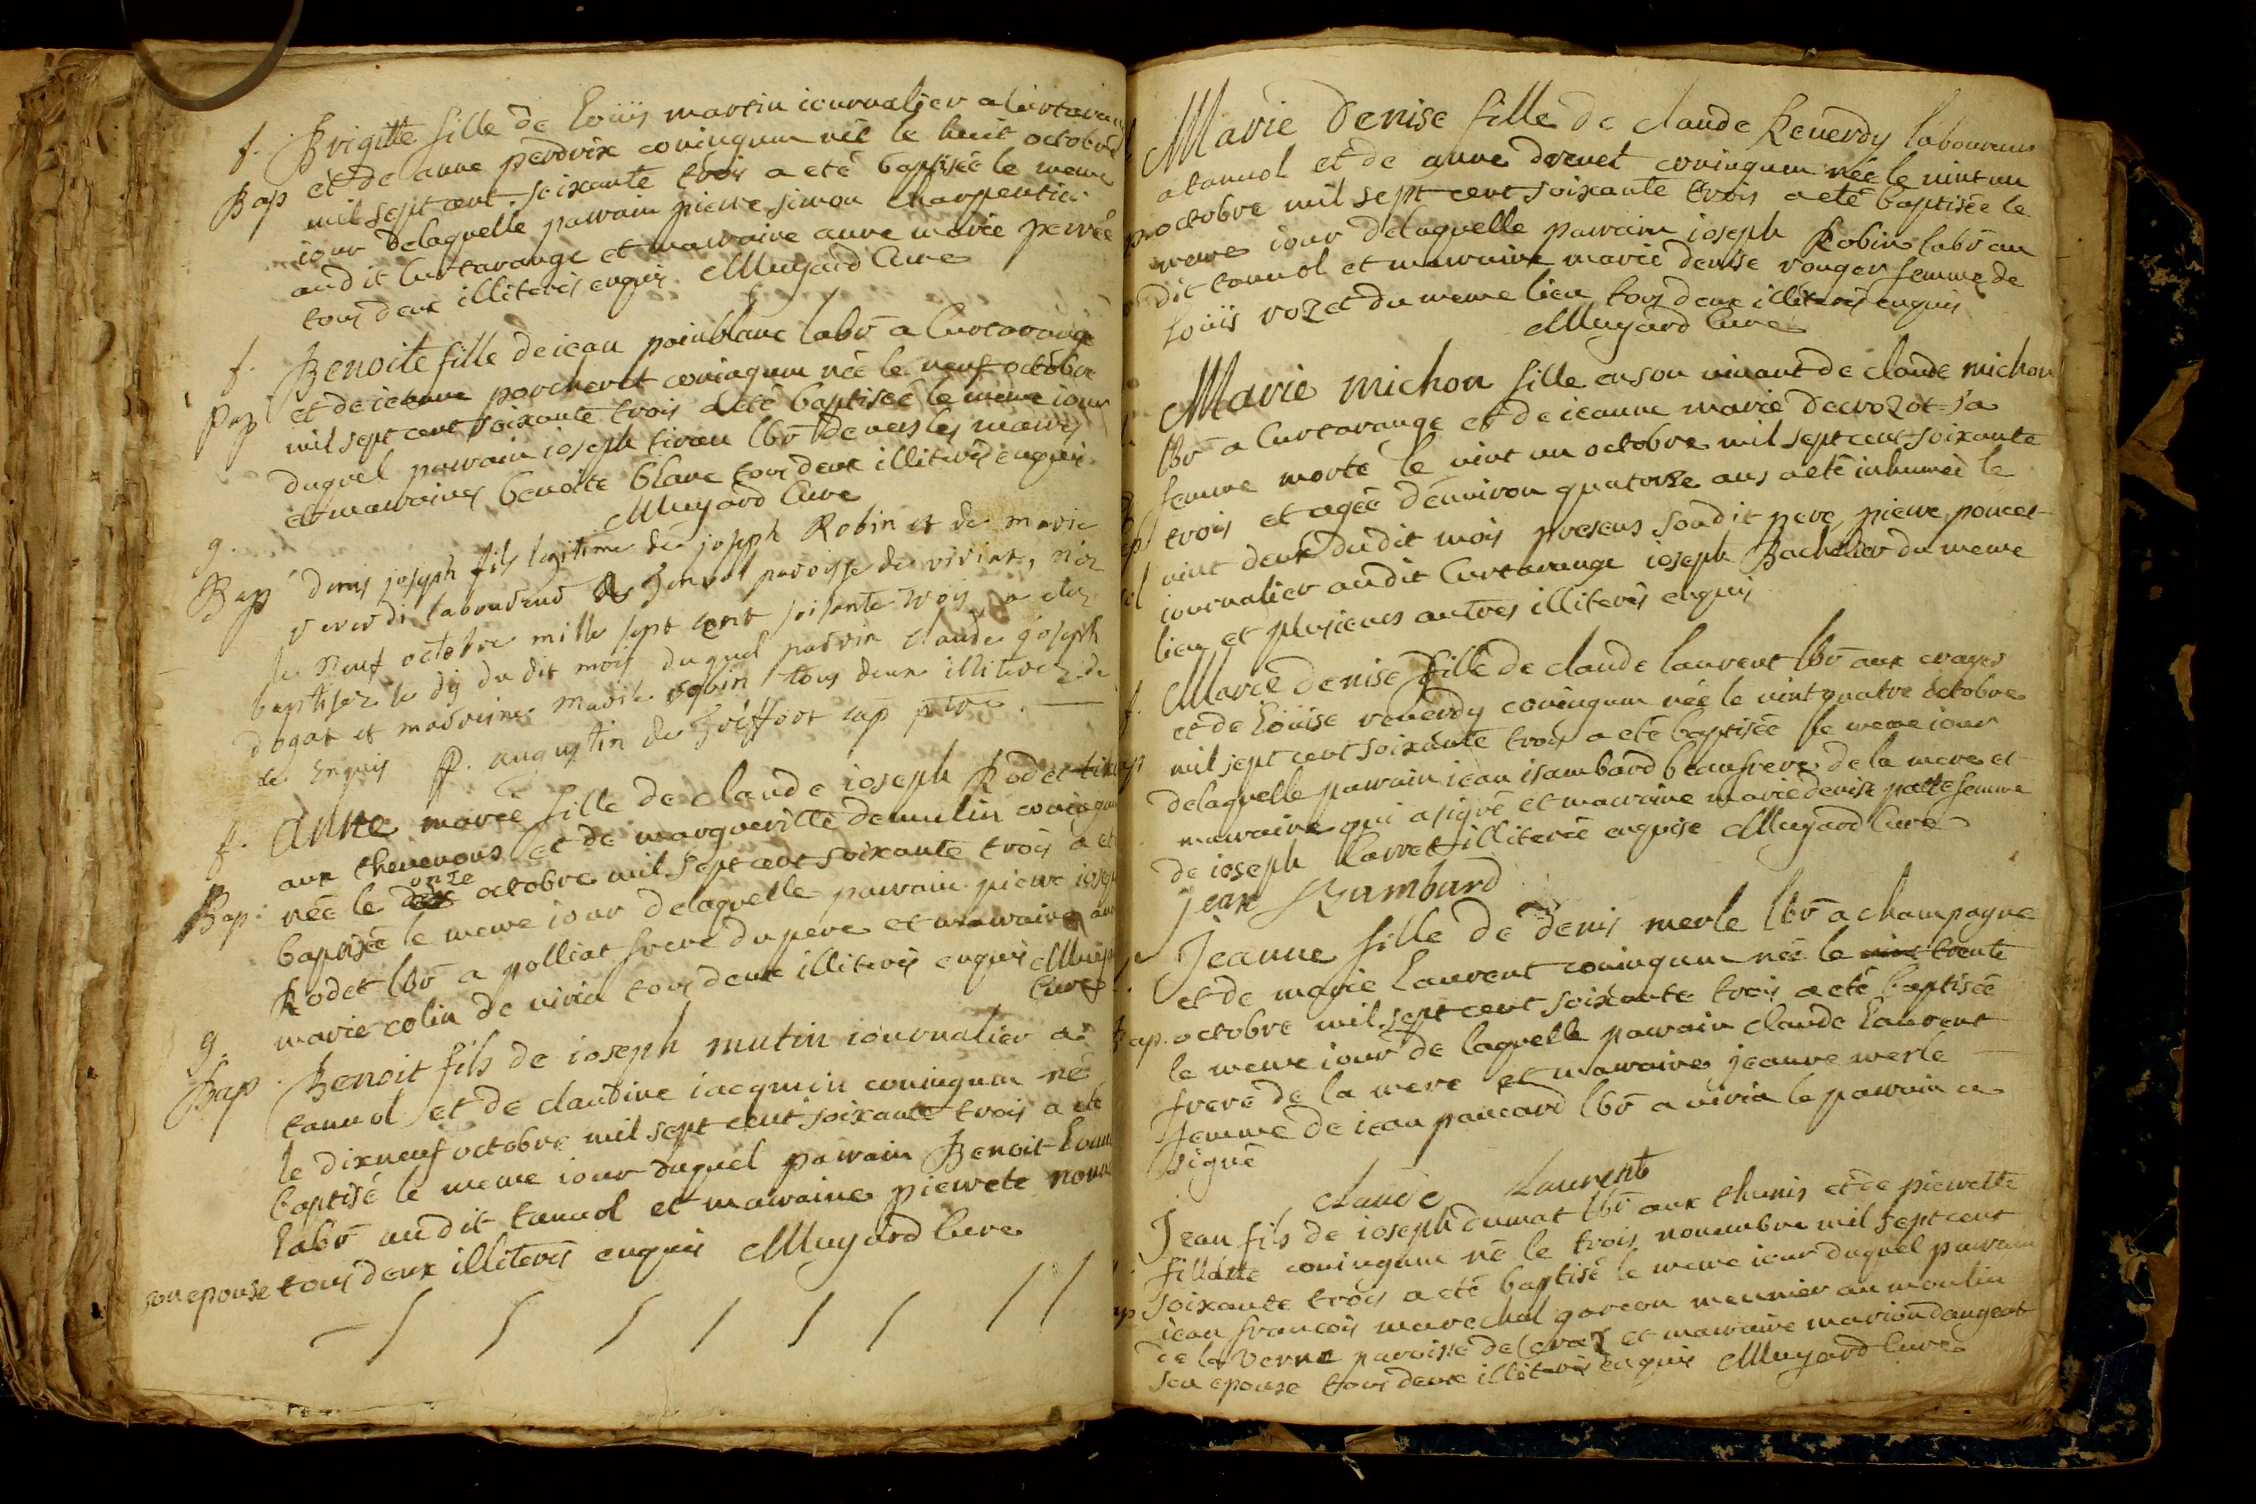 f. Brigitte fille de Loüis martin iournalier a Curtarange
Bap et de anne perdrix coniugum née le huit octobre
mil sept cent soixante trois a eté baptisée le meme
iour delaquelle parrain pierre simon charpentier
audit Curtarange et marraine anne marie perrée
tous deux illiterés enquis. Muyard Cure
f. Benoite fille de iean poinblanc labr̄ a Curtarange
Bap et de ieanne porcheret coniugum née le neuf octobre
mil sept cent soixante trois a eté baptisée le meme iour
duquel parrain ioseph tiran lbr̄ de vers les mares
et marraines benoite blanc tous deux illiterés enquis.
Muyard Cure
g.
Bap denis joseph fils legitime de joseph Robin et de marie
reverdi laboureur de tanvol paroisse de viriat, néz
le Neuf octobre mille sept cent soisante trois, a etez
baptisez le dis du dit mois duquel parrin claude joseph
dogat et marreine marie robin tous deux illiterez de
ce Enquis fr. augustin de treffort cap ptre.
f. Anne marie fille de claude ioseph Rodet
aux thevenons et de margueritte demulin coniugum
onze
Bap: née le dix octobre mil sept cent soixante trois a et
baptisée le meme iour delaquelle parrain pierre ioseph
Rodet lbr̄ a polliat frere du pere et marraine anne
marie colin de viria tous deux illiterés enquis Muyard
Cure
g.
Bap Benoit fils de ioseph mutin iournalier a
tanvol et de claudine iacquin coniugum né
le dixneuf octobre mil sept cent soixante trois a eté
baptisé le meme iour duquel parrain Benoit
labr̄ audit tanvol et marraine pierrete
son epouse tous deux illiterés enquis Muyard Cure
Marie Denise fille de claude Reverdy laboureur
a tanvol et de anne drevet coniugum née le vint un
octobre mil sept cent soixante trois a eté baptisée le
meme iour delaquelle parrain ioseph Robin labr̄ au
dit tanvol et marraine marie denise ronger femme de
Loüis rozet du meme lieu tous deux illiterés enquis
Muyard Cure
Marie michon fille en son vivant de claude michon
lbr̄ a Curtarange et de ieanne marie decrozot sa
femme morte le vint un octobre mil sept cent soixante
trois et agée d'environ quatorze ans a eté inhumée le
vint deux dudit mois presens soudit pere, pierre poncet
iournalier audit Curtarange ioseph Bachelier du meme
lieu et plusieurs autres illiterés enquis
f. Marie denise fille de claude laurent lbr̄ aux crayes
et de Loüise reverdy coniugum née le vint quatre octobre
mil sept cent soixante trois a eté baptisée le meme iour
delaquelle parrain iean isambard beaufrere de la mere et
marraine qui a signé et marraine marie denise patte femme
de ioseph larret illiterée enquise Muyard Cure
jean Izambard
Jeanne fille de denis merle lbr̄ a champagne
et de marie Laurent coniugum née le vint trente
Bap. octobre mil sept cent soixante trois a eté baptisée
le meme iour de laquelle parrain claude Laurent
frere de la mere et marraine jeanne merle
femme de iean pancard lbr̄ a viria le parrain a
signé
claude Laurent
Jean fils de ioseph cumat lbr̄ aux thenis et de pierrette
fillatte coniugum né le trois novembre mil sept cent
soixante trois a eté baptisé le meme iour duquel parrain
iean francois marechal garcon meunier au moulin
de la verne paroisse de cras et marraine marion dangeat
son epouse tous deux illiterés enquis Muyard Cure